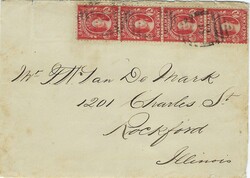 Mr. F. H. Van De Mark
1201 Charles St
Rockford
Illinois